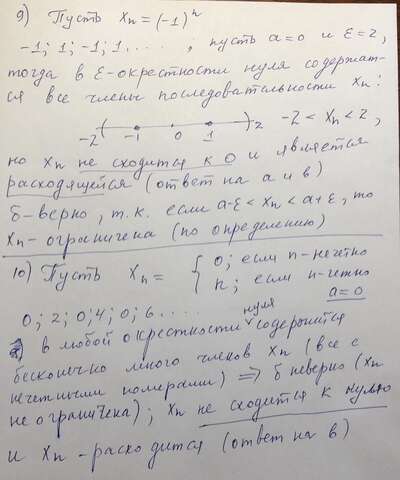 9) Пусть Xn = (-1)^n
-1; 1; -1; 1. . . . . , пусть a=0 и ε=2,
тогда в ε-окрестности нуля содержат-
ся все члены последовательности Xn:
-2 -1 0 1 2 -2 < Xn < 2,
но Xn не сходится к 0 и является
расходящейся (ответ на а и в)
б-верно, т.к. если a-ε < Xn < a+ε, то
Xn - ограничена (по определению)
10) Пусть Xn = { 0; если n-нечётно
n; если n-чётно
0; 2; 0; 4; 0; 6. . . . . a=0
в любой окрестности нуля содержится
бесконечно много членов Xn (все с
нечетными номерами) ⇒ б неверно (Xn
не ограничена); Xn не сходится к нулю
и Xn - расходится (ответ на в)